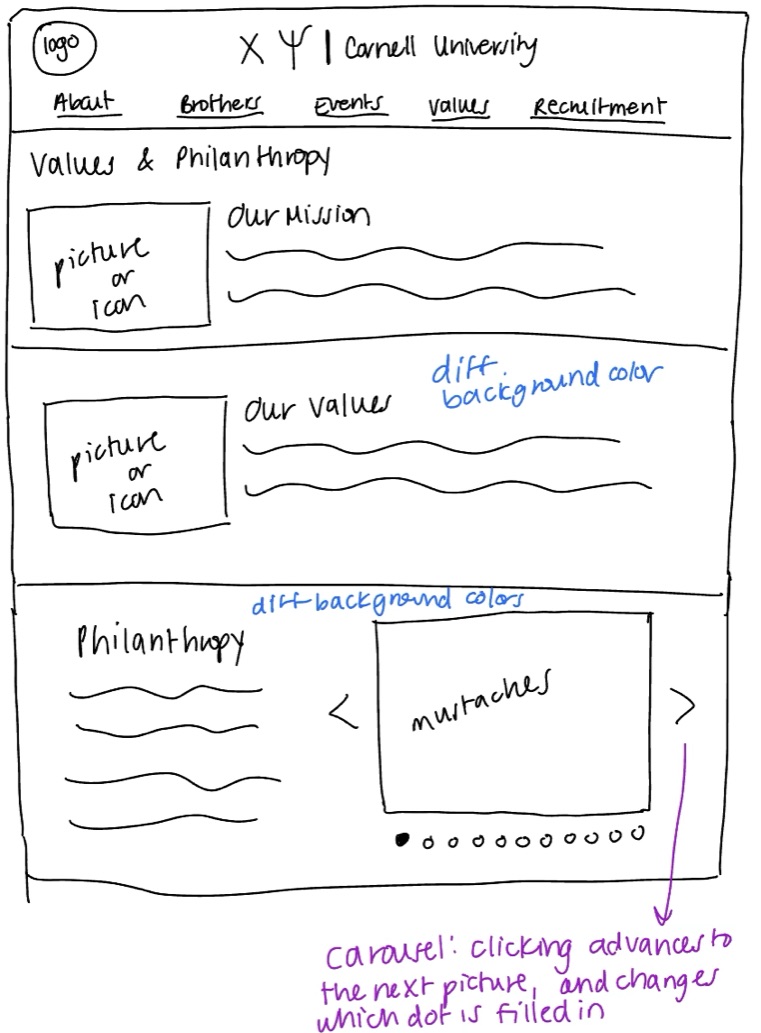 logo
X Ψ | Cornell University
About Brothers Events Values Recruitment
Values & Philanthropy
picture
or
icon
Our Mission
diff.
background color
Our Values
picture
or
icon
diff background colors
Philanthropy
<
mustaches
>
Carousel: clicking advances to
the next picture, and changes
which dot is filled in